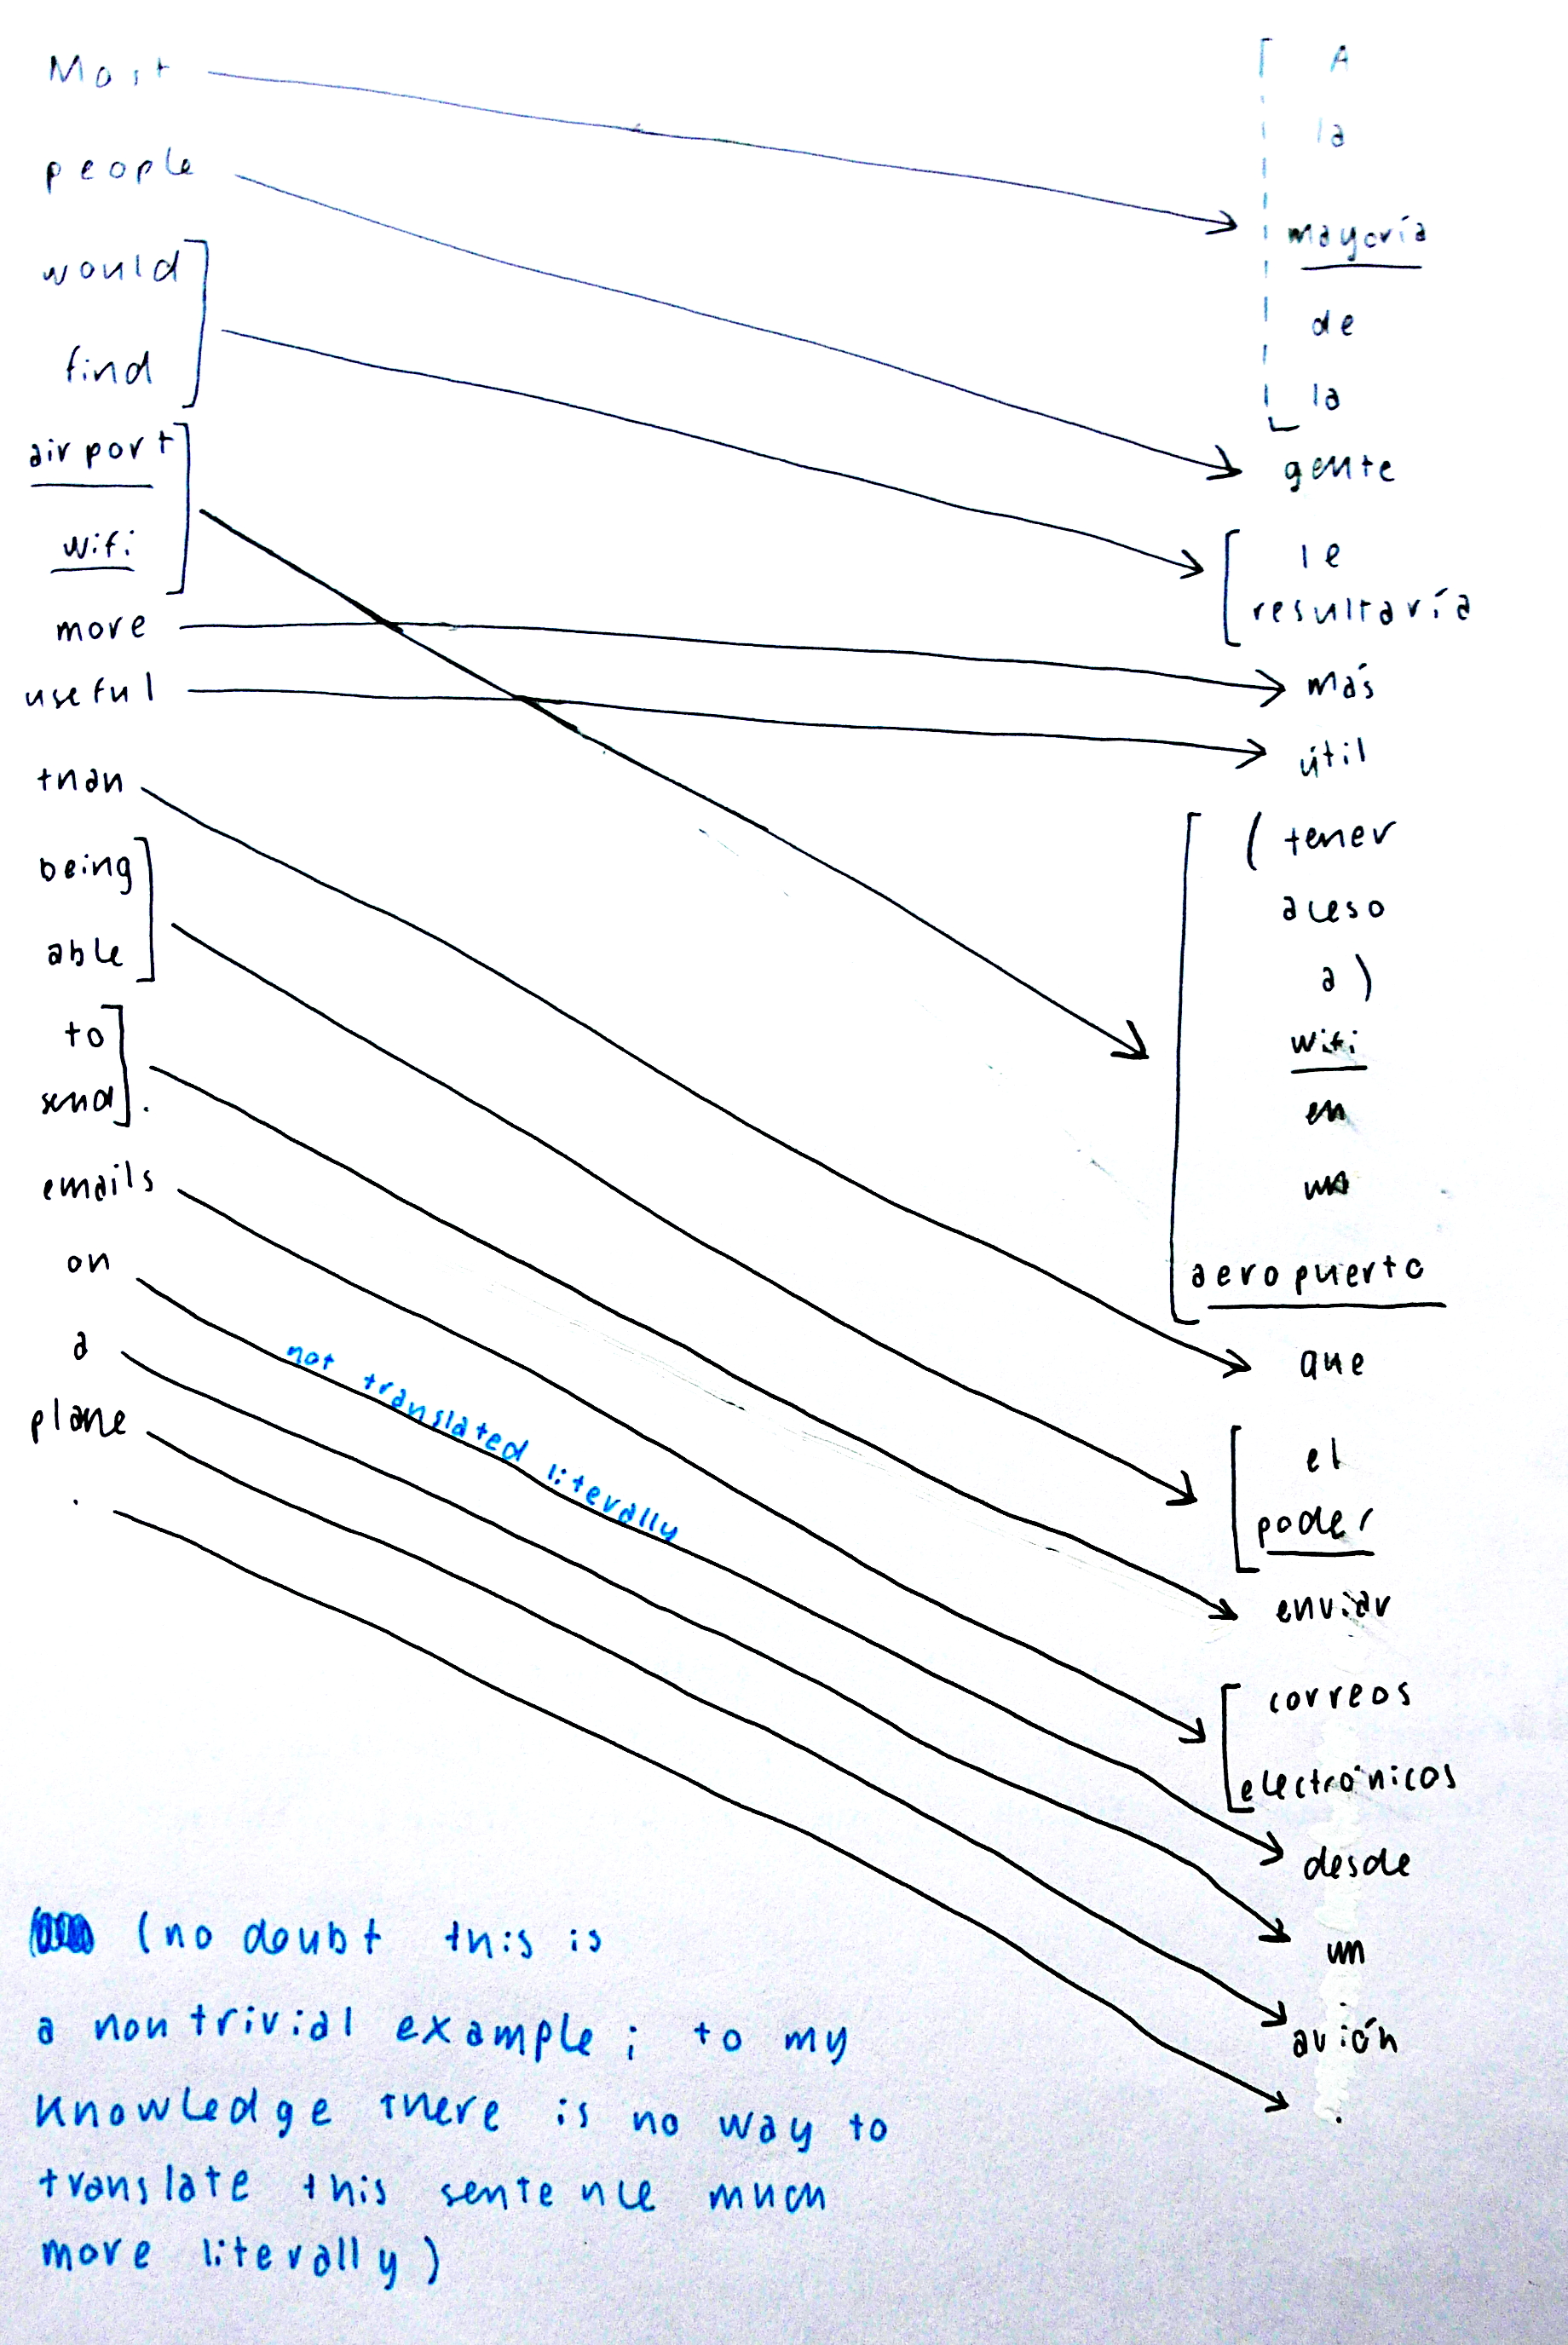 Most
people
would
find
airport
wifi
more
useful
than
being
able
to
send
emails
on
a
plane
.
not translated literally
A
la
mayoría
de
la
gente
le
resultaría
más
útil
(tener
aceso
a)
wifi
en
un
aeropuerto
que
el
poder
enviar
correos
electrónicos
desde
un
avión
.
(no doubt this is
a nontrivial example; to my
knowledge there is no way to
translate this sentence much
more literally)